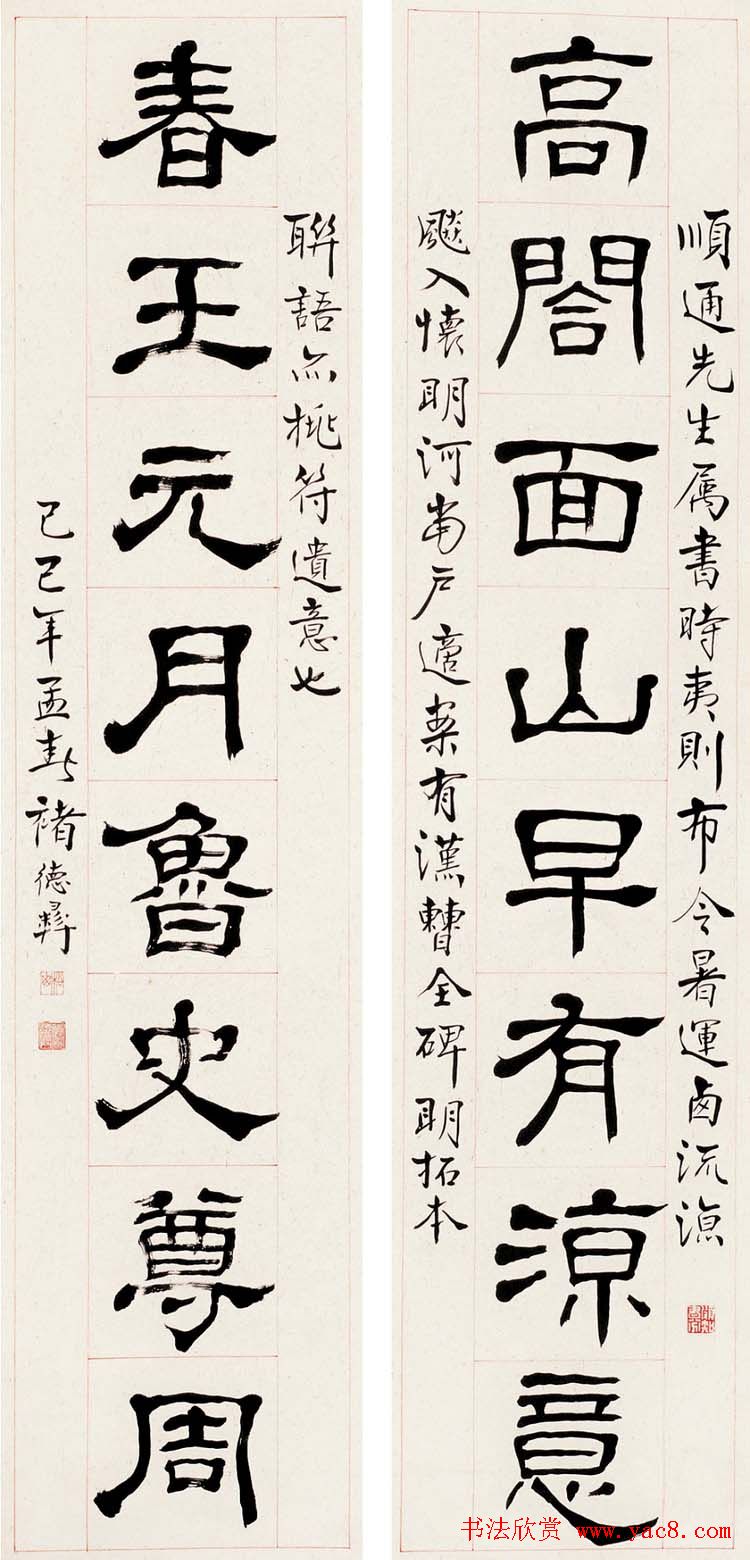 順通先生属書時夷則布令暑運卥流涼
高閤面山早有涼意
飈入懷明河當戶適案有漢曹全碑明拓本
聯語亦桃符遺意也
春王元月魯史尊周
己巳年孟春褚德彝
书法欣赏 www.yac8.com